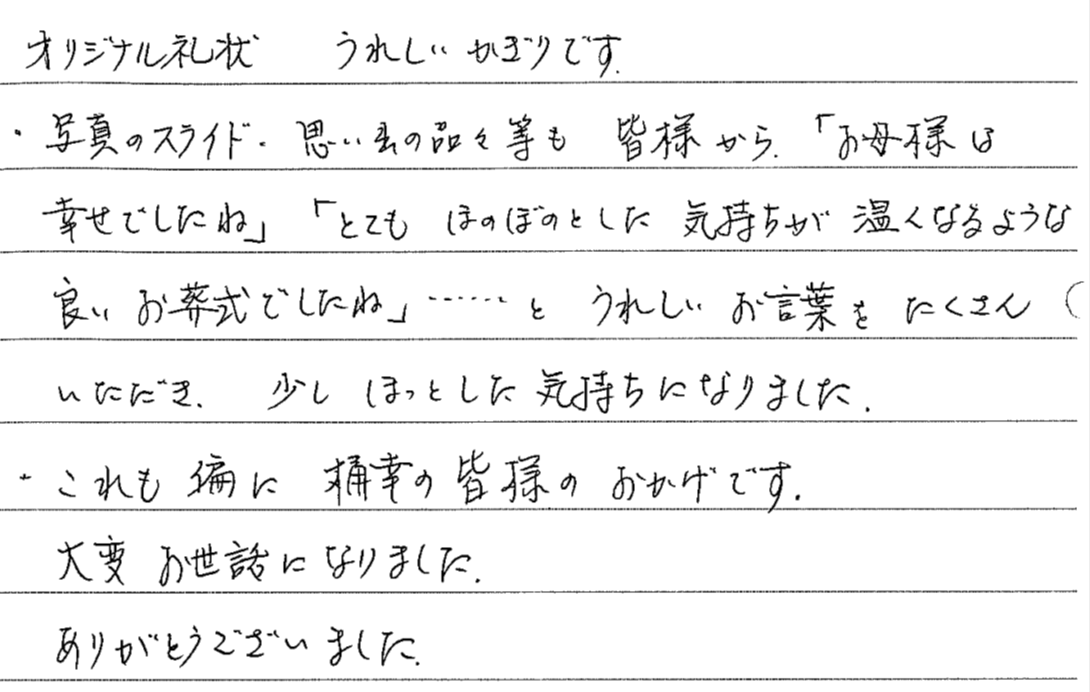 オリジナル礼状 うれしいかぎりです.
・写真のスライド・思い出の品々等も 皆様から.「お母様は
幸せでしたね」「とても ほのぼのとした 気持ちが 温くなるような
良い お葬式でしたね」……と うれしい お言葉を たくさん (
いただき. 少し ほっとした 気持ちになりました.
・これも 偏に 桶幸の 皆様の おかげです.
大変 お世話になりました.
ありがとうございました.